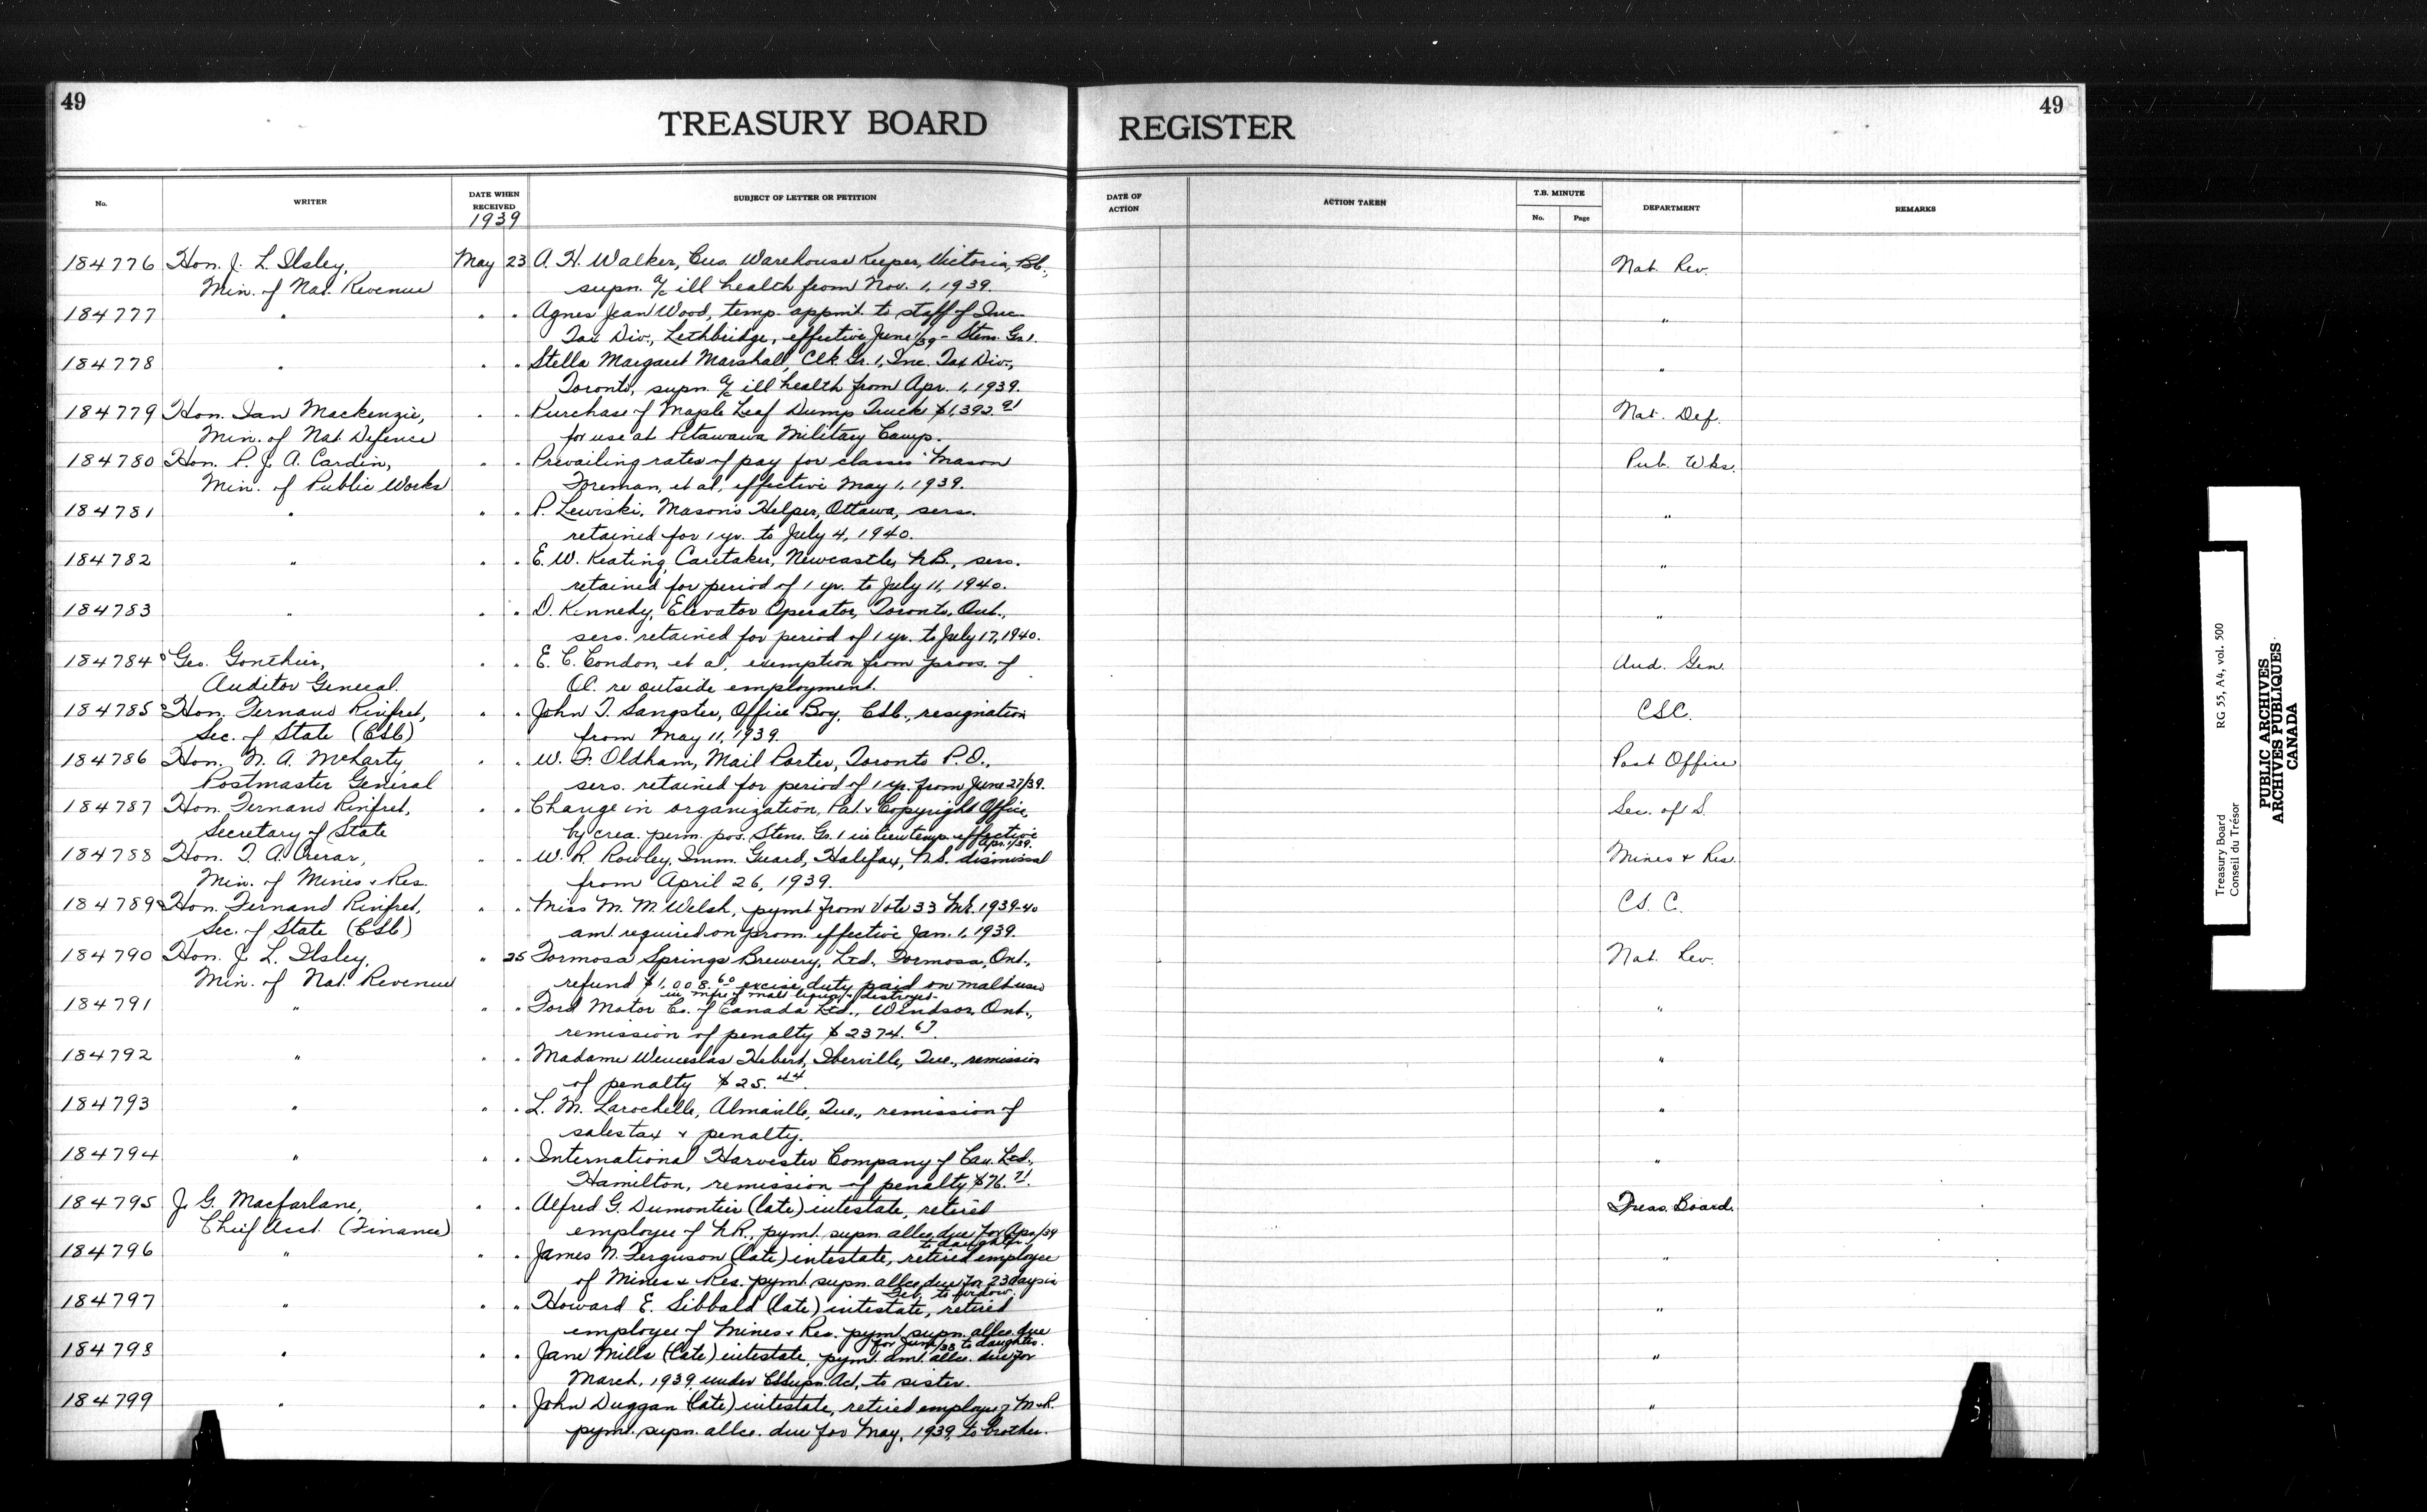 49
TREASURY BOARD
REGISTER
49
No.
WRITER
DATE WHEN RECEIVED
1939
SUBJECT OF LETTER OR PETITION
DATE OF ACTION
ACTION TAKEN
T.B. MINUTE
No.
Page
DEPARTMENT
REMARKS
184776 Hon. J. L. Ilsley, May 23 A. H. Walker, Cus. Warehouse Keeper, Victoria, B.C., Nat. Rev.
Min. of Nat. Revenue supn. a/c ill health from Nov. 1, 1939.
184777 " " " Agnes Jean Wood, temp. appmt. to staff of Inc. "
Tax Div., Lethbridge, effective June 1/39 - Sten. Gr. 1.
184778 " " " Stella Margaret Marshall, Clk. Gr. 1, Inc. Tax Div., "
Toronto, supn. a/c ill health from Apr. 1, 1939.
184779 Hon. Ian Mackenzie, " " Purchase of Maple Leaf Dump Truck $1,392.91 Nat. Def.
Min. of Nat. Defence for use at Petawawa Military Camp.
184780 Hon. P. J. A. Cardin, " " Prevailing rates of pay for classes "Mason Pub. Wks.
Min. of Public Works Foreman, et al, effective May 1, 1939.
184781 " " " P. Lewiski, Mason's Helper, Ottawa, sers. "
retained for 1 yr. to July 4, 1940.
184782 " " " E. W. Keating, Caretaker, Newcastle, N.B., sers. "
retained for period of 1 yr. to July 11, 1940.
184783 " " " D. Kennedy, Elevator Operator, Toronto, Ont., "
sers. retained for period of 1 yr. to July 17, 1940.
184784 Geo. Gonthier, " " E. C. Condon, et al, exemption from provs. of Aud. Gen.
Auditor General. OC. re outside employment.
184785 Hon. Fernand Rinfret, " " John T. Sangster, Office Boy, CSC., resignation CSC.
Sec. of State (CSC) from May 11, 1939.
184786 Hon. N. A. McLarty " " W. F. Oldham, Mail Porter, Toronto P.O., Post Office
Postmaster General sers. retained for period of 1 yr. from June 27/39.
184787 Hon. Fernand Rinfret, " " Change in organization, Pat. & Copyright Office, Sec. of S.
Secretary of State by crea. perm. pos. Sten. Gr. 1 in lieu temp. effective
Apr. 1/39.
184788 Hon. T. A. Crerar, " " W. R. Rowley, Imm. Guard, Halifax, N.S. dismissal Mines & Res.
Min. of Mines & Res. from April 26, 1939.
184789 Hon. Fernand Rinfret, " " Miss M. M. Welsh, pymt from Vote 33 M.E. 1939-40 CS. C.
Sec. of State (CSC) amt. required on prom. effective Jan. 1, 1939.
184790 Hon. J. L. Ilsley, " 25 Formosa Springs Brewery, Ltd., Formosa, Ont., Nat. Rev.
Min. of Nat. Revenue refund $1,008.60 excise duty paid on malt used
in mfre of malt liquor destroyed.
184791 " " " Ford Motor Co. of Canada Ltd., Windsor, Ont., "
remission of penalty $2374.67.
184792 " " " Madame Wenceslas Hebert, Iberville, Que., remission "
of penalty $25.44.
184793 " " " L. M. Larochelle, Almaville, Que., remission of "
sales tax & penalty.
184794 " " " International Harvester Company of Can. Ltd., "
Hamilton, remission of penalty $76.71.
184795 J. G. Macfarlane, " " Alfred G. Dumontier (late) intestate, retired Treas. Board.
Chief Acct. (Finance) employee of N.R., pymt. supn. allce. due for Apr./39
to daughter.
184796 " " " James N. Ferguson (late) intestate, retired employee "
of Mines & Res. pymt. supn. allce. due for 23 days in
Feb. to widow.
184797 " " " Howard E. Sibbald (late) intestate, retired "
employee of Mines & Res. pymt. supn. allce. due
for June/38 to daughter.
184798 " " " Jane Mills (late) intestate, pymt. amt. allce. due for "
March, 1939 under CS Supn. Act, to sister.
184799 " " " John Duggan (late) intestate, retired employee of M&R. "
pymt. supn. allce. due for May, 1939, to brother.
Treasury Board
Conseil du Trésor
RG 55, A4, vol. 500
PUBLIC ARCHIVES
ARCHIVES PUBLIQUES
CANADA